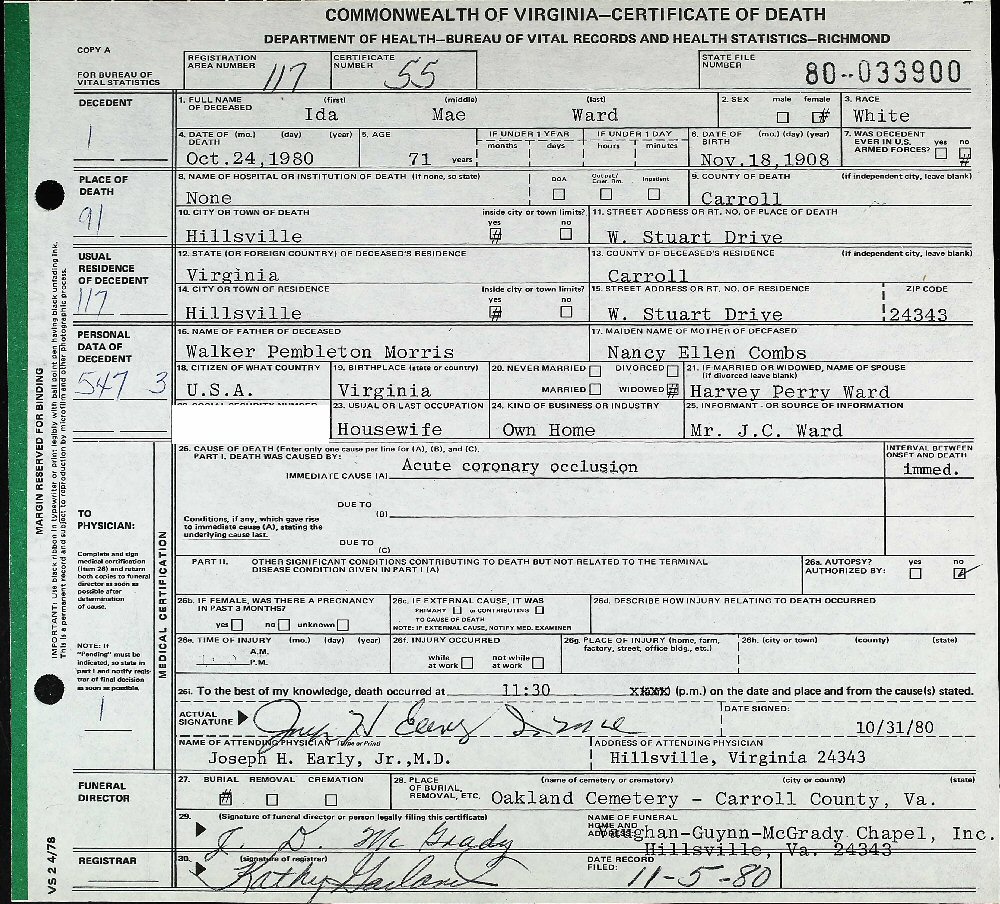 COMMONWEALTH OF VIRGINIA—CERTIFICATE OF DEATH
DEPARTMENT OF HEALTH—BUREAU OF VITAL RECORDS AND HEALTH STATISTICS—RICHMOND
COPY A
FOR BUREAU OF VITAL STATISTICS
REGISTRATION AREA NUMBER 117
CERTIFICATE NUMBER 55
STATE FILE NUMBER 80--033900
DECEDENT
1
1. FULL NAME OF DECEASED (first) (middle) (last)
Ida Mae Ward
2. SEX male female #
3. RACE White
4. DATE OF DEATH (mo.) (day) (year)
Oct.24,1980
5. AGE 71 years
IF UNDER 1 YEAR months days
IF UNDER 1 DAY hours minutes
6. DATE OF BIRTH (mo.) (day) (year)
Nov.18,1908
7. WAS DECEDENT EVER IN U.S. ARMED FORCES? yes no #
PLACE OF DEATH
91
8. NAME OF HOSPITAL OR INSTITUTION OF DEATH (If none, so state)
None
DOA Outpat./Emer. Rm. Inpatient
9. COUNTY OF DEATH (if independent city, leave blank)
Carroll
10. CITY OR TOWN OF DEATH
Hillsville
inside city or town limits? yes # no
11. STREET ADDRESS OR RT. NO. OF PLACE OF DEATH
W. Stuart Drive
USUAL RESIDENCE OF DECEDENT
117
12. STATE (OR FOREIGN COUNTRY) OF DECEASED'S RESIDENCE
Virginia
13. COUNTY OF DECEASED'S RESIDENCE (if independent city, leave blank)
Carroll
14. CITY OR TOWN OF RESIDENCE
Hillsville
inside city or town limits? yes # no
15. STREET ADDRESS OR RT. NO. OF RESIDENCE
W. Stuart Drive
ZIP CODE
24343
PERSONAL DATA OF DECEDENT
547 3
16. NAME OF FATHER OF DECEASED
Walker Pembleton Morris
17. MAIDEN NAME OF MOTHER OF DECEASED
Nancy Ellen Combs
18. CITIZEN OF WHAT COUNTRY
U.S.A.
19. BIRTHPLACE (state or country)
Virginia
20. NEVER MARRIED DIVORCED
MARRIED WIDOWED #
21. IF MARRIED OR WIDOWED, NAME OF SPOUSE (if divorced leave blank)
Harvey Perry Ward
23. USUAL OR LAST OCCUPATION
Housewife
24. KIND OF BUSINESS OR INDUSTRY
Own Home
25. INFORMANT - OR SOURCE OF INFORMATION
Mr. J.C. Ward
MARGIN RESERVED FOR BINDING
IMPORTANT: Use black ribbon in typewriter or print legibly with ball point pen having black unfading ink.
This is a permanent record and subject to reproduction by microfilm and other photographic process.
TO PHYSICIAN:
Complete and sign medical certification (Item 26) and return both copies to funeral director as soon as possible after determination of cause.
NOTE: If "Pending" must be indicated, so state in part I and notify registrar of final decision as soon as possible.
1
MEDICAL CERTIFICATION
26. CAUSE OF DEATH (Enter only one cause per line for (A), (B), and (C).
PART I. DEATH WAS CAUSED BY:
IMMEDIATE CAUSE (A) Acute coronary occlusion
INTERVAL BETWEEN ONSET AND DEATH
immed.
DUE TO (B)
Conditions, if any, which gave rise to immediate cause (A), stating the underlying cause last.
DUE TO (C)
PART II. OTHER SIGNIFICANT CONDITIONS CONTRIBUTING TO DEATH BUT NOT RELATED TO THE TERMINAL DISEASE CONDITION GIVEN IN PART I (A)
26a. AUTOPSY? AUTHORIZED BY: yes no
26b. IF FEMALE, WAS THERE A PREGNANCY IN PAST 3 MONTHS?
yes no unknown
26c. IF EXTERNAL CAUSE, IT WAS
PRIMARY or CONTRIBUTING
TO CAUSE OF DEATH
NOTE: IF EXTERNAL CAUSE, NOTIFY MED. EXAMINER
26d. DESCRIBE HOW INJURY RELATING TO DEATH OCCURRED
26e. TIME OF INJURY (mo.) (day) (year)
A.M.
P.M.
26f. INJURY OCCURRED
while at work not while at work
26g. PLACE OF INJURY (home, farm, factory, street, office bldg., etc.)
26h. (city or town) (county) (state)
26i. To the best of my knowledge, death occurred at 11:30 XXXX (p.m.) on the date and place and from the cause(s) stated.
ACTUAL SIGNATURE
DATE SIGNED:
10/31/80
NAME OF ATTENDING PHYSICIAN (Type or Print)
Joseph H. Early, Jr.,M.D.
ADDRESS OF ATTENDING PHYSICIAN
Hillsville, Virginia 24343
FUNERAL DIRECTOR
27. BURIAL REMOVAL CREMATION
#
28. PLACE OF BURIAL, REMOVAL, ETC. (name of cemetery or crematory) (city or county) (state)
Oakland Cemetery - Carroll County, Va.
29. (Signature of funeral director or person legally filing this certificate)
J. D. McGrady
NAME OF FUNERAL HOME AND ADDRESS:
Vaughan-Guynn-McGrady Chapel, Inc.
Hillsville, Va. 24343
REGISTRAR
30. (signature of registrar)
Kathy Garland
DATE RECORD FILED: 11-5-80
VS 2 4/78